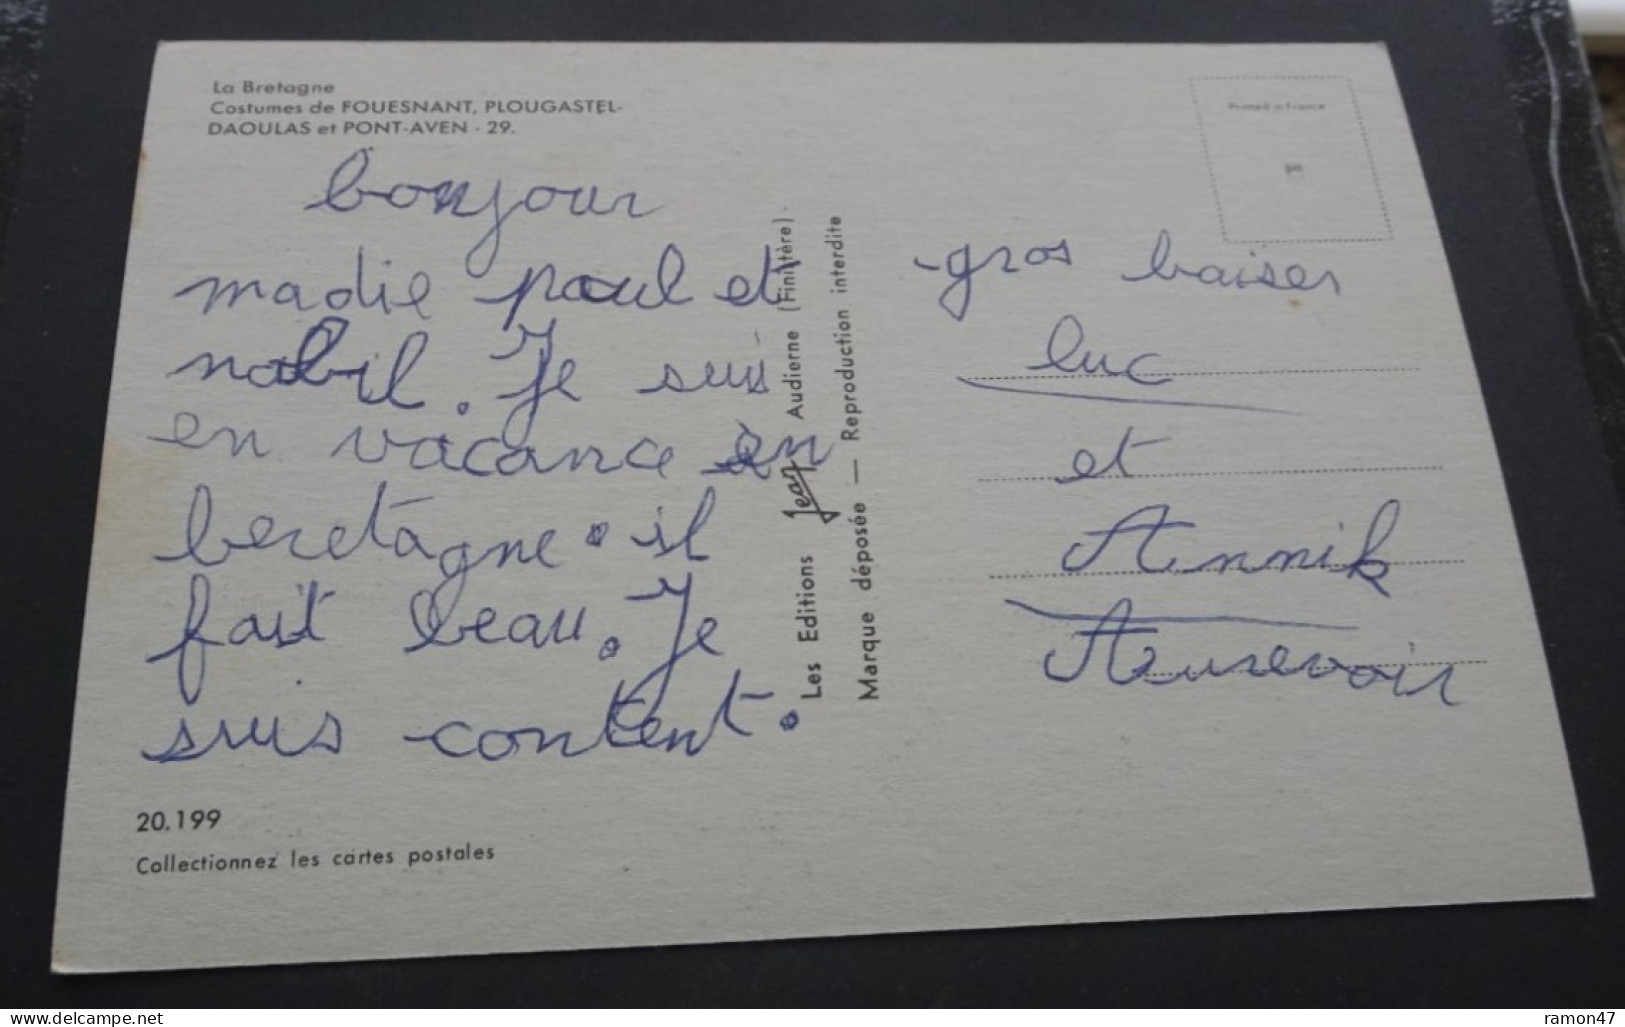 La Bretagne
Costumes de FOUESNANT, PLOUGASTEL-
DAOULAS et PONT-AVEN - 29.
bonjour
madie paul et
nabil. Je suis
en vacance en
beretagne. il
fait beau. Je
suis content.
20.199
Collectionnez les cartes postales
Les Editions Jean Audierne (Finistère) -
Marque déposée — Reproduction interdite
Printed in France
gros baiser
luc
et
Annik
Aurevoir
www.delcampe.net
ramon47